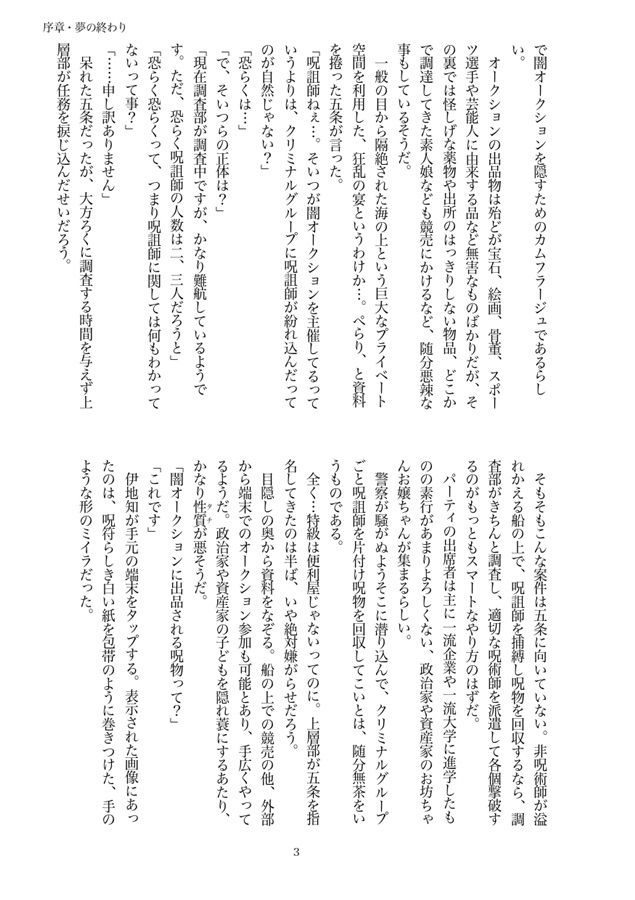 序章・夢の終わり
で闇オークションを隠すためのカムフラージュであるらし
い。
　オークションの出品物は殆どが宝石、絵画、骨董、スポー
ツ選手や芸能人に由来する品など無害なものばかりだが、そ
の裏では怪しげな薬物や出所のはっきりしない物品、どこか
で調達してきた素人娘なども競売にかけるなど、随分悪辣な
事もしているそうだ。
　一般の目から隔絶された海の上という巨大なプライベート
空間を利用した、狂乱の宴というわけか…。ぺらり、と資料
を捲った五条が言った。
「呪詛師ねぇ…。そいつが闇オークションを主催してるって
いうよりは、クリミナルグループに呪詛師が紛れ込んだって
のが自然じゃない？」
「恐らくは…」
「で、そいつらの正体は？」
「現在調査部が調査中ですが、かなり難航しているようで
す。ただ、恐らく呪詛師の人数は二、三人だろうと」
「恐らく恐らくって、つまり呪詛師に関しては何もわかって
ないって事？」
「……申し訳ありません」
　呆れた五条だったが、大方ろくに調査する時間を与えず上
層部が任務を捩じ込んだせいだろう。
　そもそもこんな案件は五条に向いていない。非呪術師が溢
れかえる船の上で、呪詛師を捕縛し呪物を回収するなら、調
査部がきちんと調査し、適切な呪術師を派遣して各個撃破す
るのがもっともスマートなやり方のはずだ。
　パーティの出席者は主に一流企業や一流大学に進学したも
のの素行があまりよろしくない、政治家や資産家のお坊ちゃ
んお嬢ちゃんが集まるらしい。
　警察が騒がぬようそこに潜り込んで、クリミナルグループ
ごと呪詛師を片付け呪物を回収してこいとは、随分無茶をい
うものである。
　全く…特級は便利屋じゃないってのに。上層部が五条を指
名してきたのは半ば、いや絶対嫌がらせだろう。
　目隠しの奥から資料をなぞる。船の上での競売の他、外部
から端末でのオークション参加も可能とあり、手広くやって
るようだ。政治家や資産家の子どもを隠れ蓑にするあたり、
かなり性質が悪そうだ。
タチ
「闇オークションに出品される呪物って？」
「これです」
　伊地知が手元の端末をタップする。表示された画像にあっ
たのは、呪符らしき白い紙を包帯のように巻きつけた、手の
ような形のミイラだった。
3